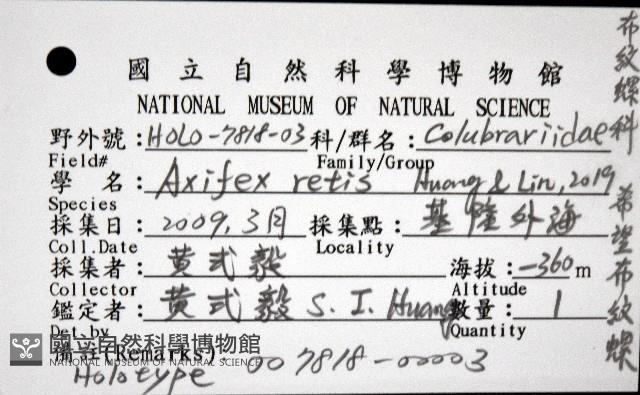 國立自然科學博物館
NATIONAL MUSEUM OF NATURAL SCIENCE
野外號：HOLO-7818-03 科/群名：Colubrariidae
Field# Family/Group
學 名：Axifex retis Huang & Lin, 2019
Species
採集日：2009.3月 採集點：基隆外海
Coll.Date Locality
採集者：黃式毅 海拔：-360m
Collector Altitude
鑑定者：黃式毅 S. I. Huang 數量：1
Det.by Quantity
備註(Remarks)
Holotype 007818-00003
布紋螺科 希望布紋螺
國立自然科學博物館
NATIONAL MUSEUM OF NATURAL SCIENCE